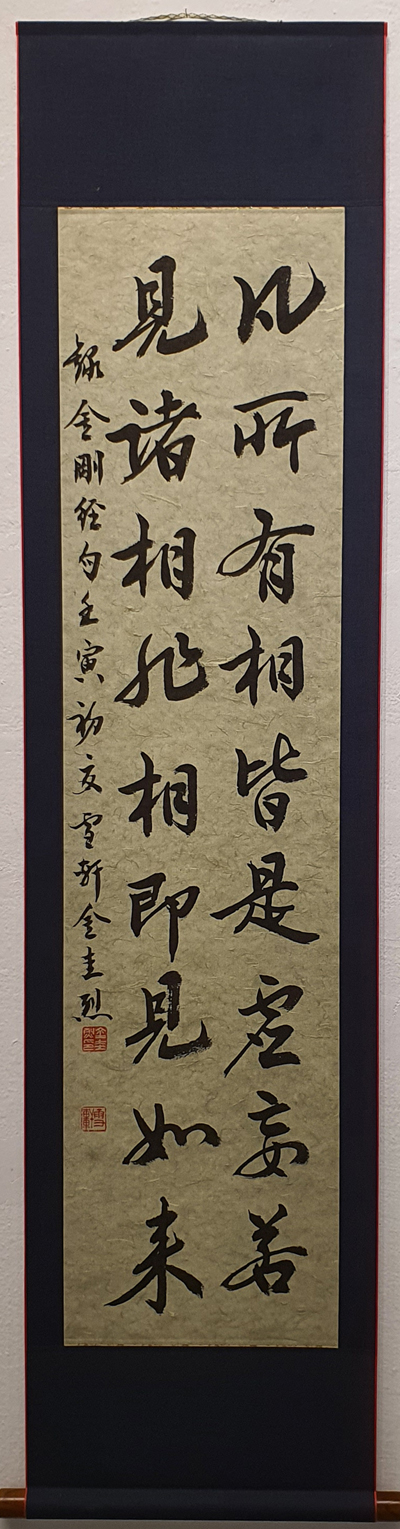 凡所有相皆是虛妄若
見諸相非相即見如来
錄金剛經句壬寅初夏雪軒金圭烈